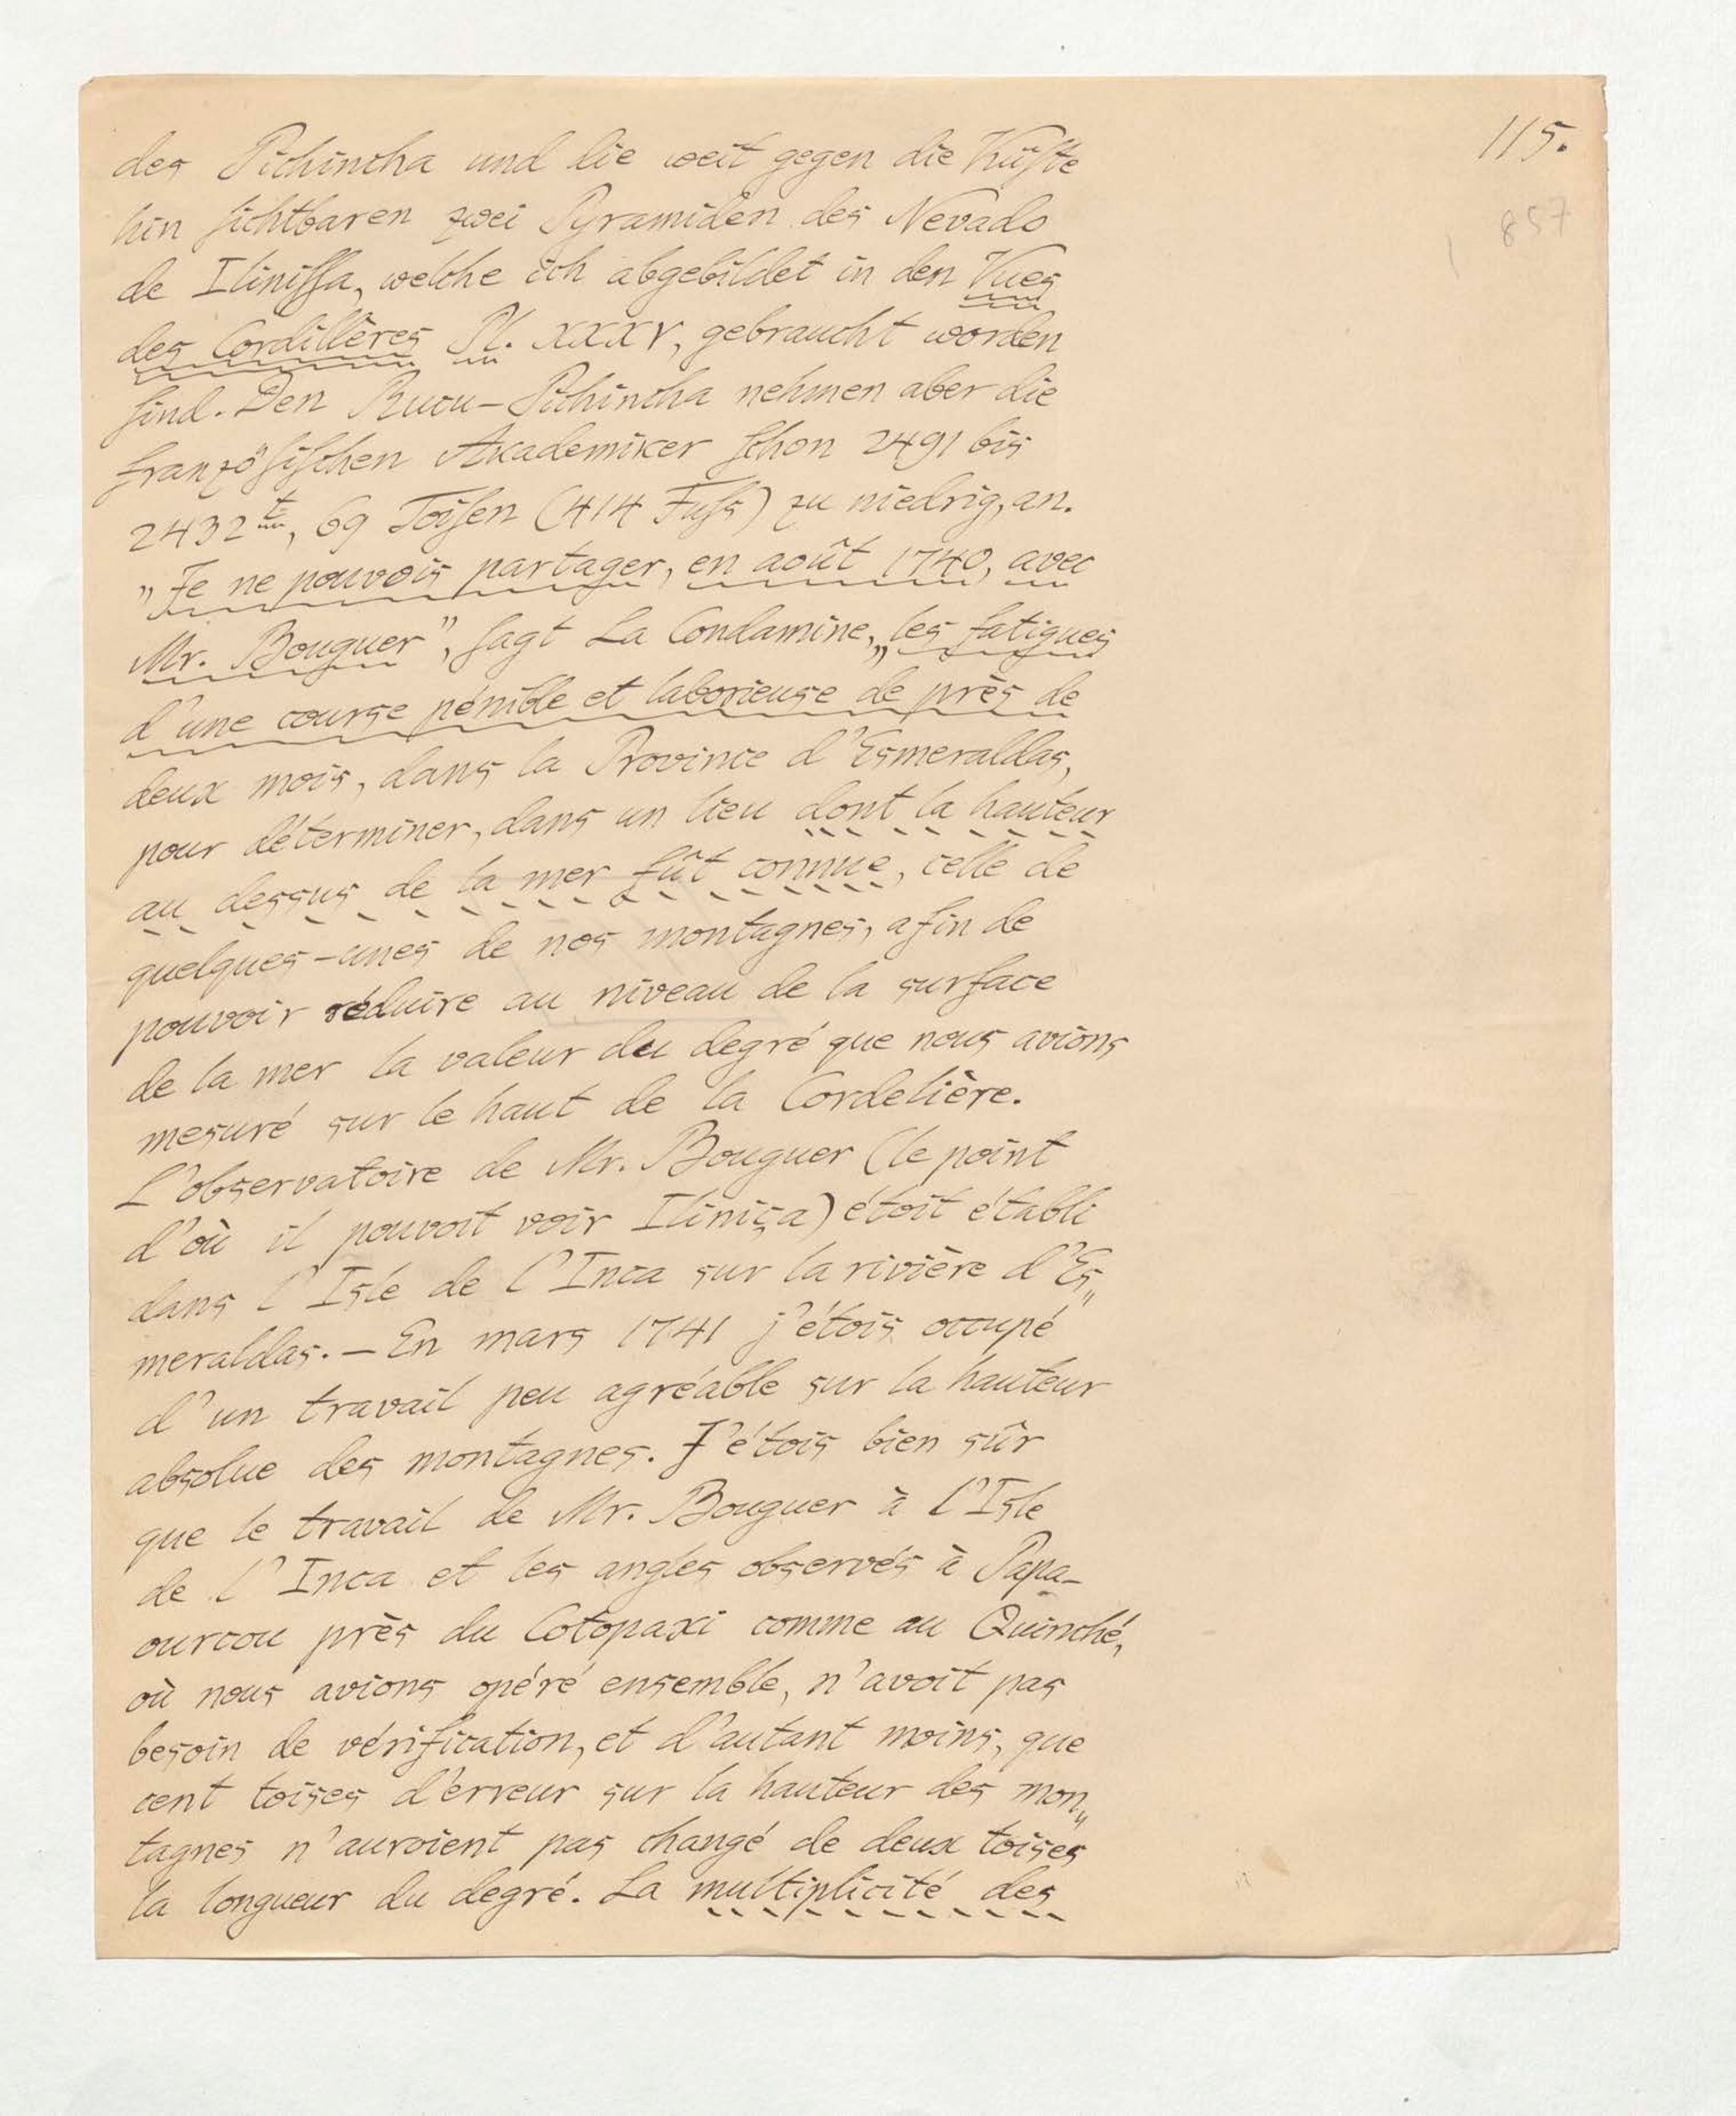 115.
857
des Pichincha und die weit gegen die Küſte
hin ſichtbaren zwei Pyramiden des Nevado
de Iliniſſa, welche ich abgebildet in den Vues
des Cordillères Pl. XXXV, gebraucht worden
ſind. Den Rucu-Pichincha nehmen aber die
franzöſiſchen Akademiker ſchon 2491 bis
2432t, 69 Toiſen (414 Fuſs) zu niedrig, an.
"Je ne pouvois partager, en août 1740, avec
Mr. Bouguer", ſagt La Condamine, „les fatigues
d'une course pénible et laborieuse de près de
deux mois, dans la Province d'Esmeraldas,
pour déterminer, dans un lieu dont la hauteur
au dessus de la mer fût connue, celle de
quelques-unes de nos montagnes, afin de
pouvoir réduire au niveau de la surface
de la mer la valeur du degré que nous avions
mesuré sur le haut de la Cordelière.
L'observatoire de Mr. Bouguer (le point
d'où il pouvoit voir Iliniça) étoit établi
dans l'Isle de l'Inca sur la rivière d'Es„
meraldas. — En mars 1741 j'étois occupé
d'un travail peu agréable sur la hauteur
absolue des montagnes. J'étois bien sûr
que le travail de Mr. Bouguer à l'Isle
de l'Inca et les angles observés à Papa-
ourcou près du Cotopaxi comme au Quinché,
où nous avions opéré ensemble, n'avoit pas
besoin de vérification, et d'autant moins, que
cent toises d'erreur sur la hauteur des mon„
tagnes n'auroient pas changé de deux toises
la longueur du degré. La multiplicité des